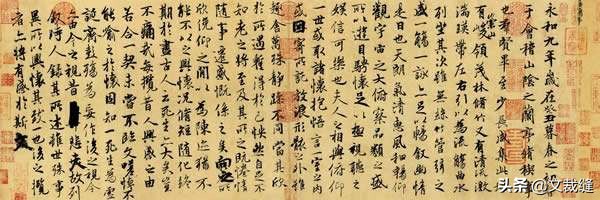 永和九年歲在癸丑暮春之初會
于會稽山陰之蘭亭脩稧事
也羣賢畢至少長咸集此地
有崇山峻領茂林脩竹又有清流激
湍暎帶左右引以為流觴曲水
列坐其次雖無絲竹管弦之
盛一觴一詠亦足以暢敘幽情
是日也天朗氣清惠風和暢仰
觀宇宙之大俯察品類之盛
所以遊目騁懷足以極視聽之
娛信可樂也夫人之相與俯仰
一世或取諸懷抱悟言一室之內
或因寄所託放浪形骸之外雖
趣舍萬殊靜躁不同當其欣
於所遇蹔得於己怏然自足不
知老之將至及其所之既惓情
隨事遷感慨係之矣向之所
欣俛仰之閒以為陳迹猶不
能不以之興懷況脩短隨化終
期於盡古人云死生亦大矣豈
不痛哉每攬昔人興感之由
若合一契未嘗不臨文嗟悼不
能喻之於懷固知一死生為虛
誕齊彭殤為妄作後之視今
亦由今之視昔悲夫故列
敘時人錄其所述雖世殊事
異所以興懷其致一也後之攬
者亦將有感於斯
头条 @文裁缝